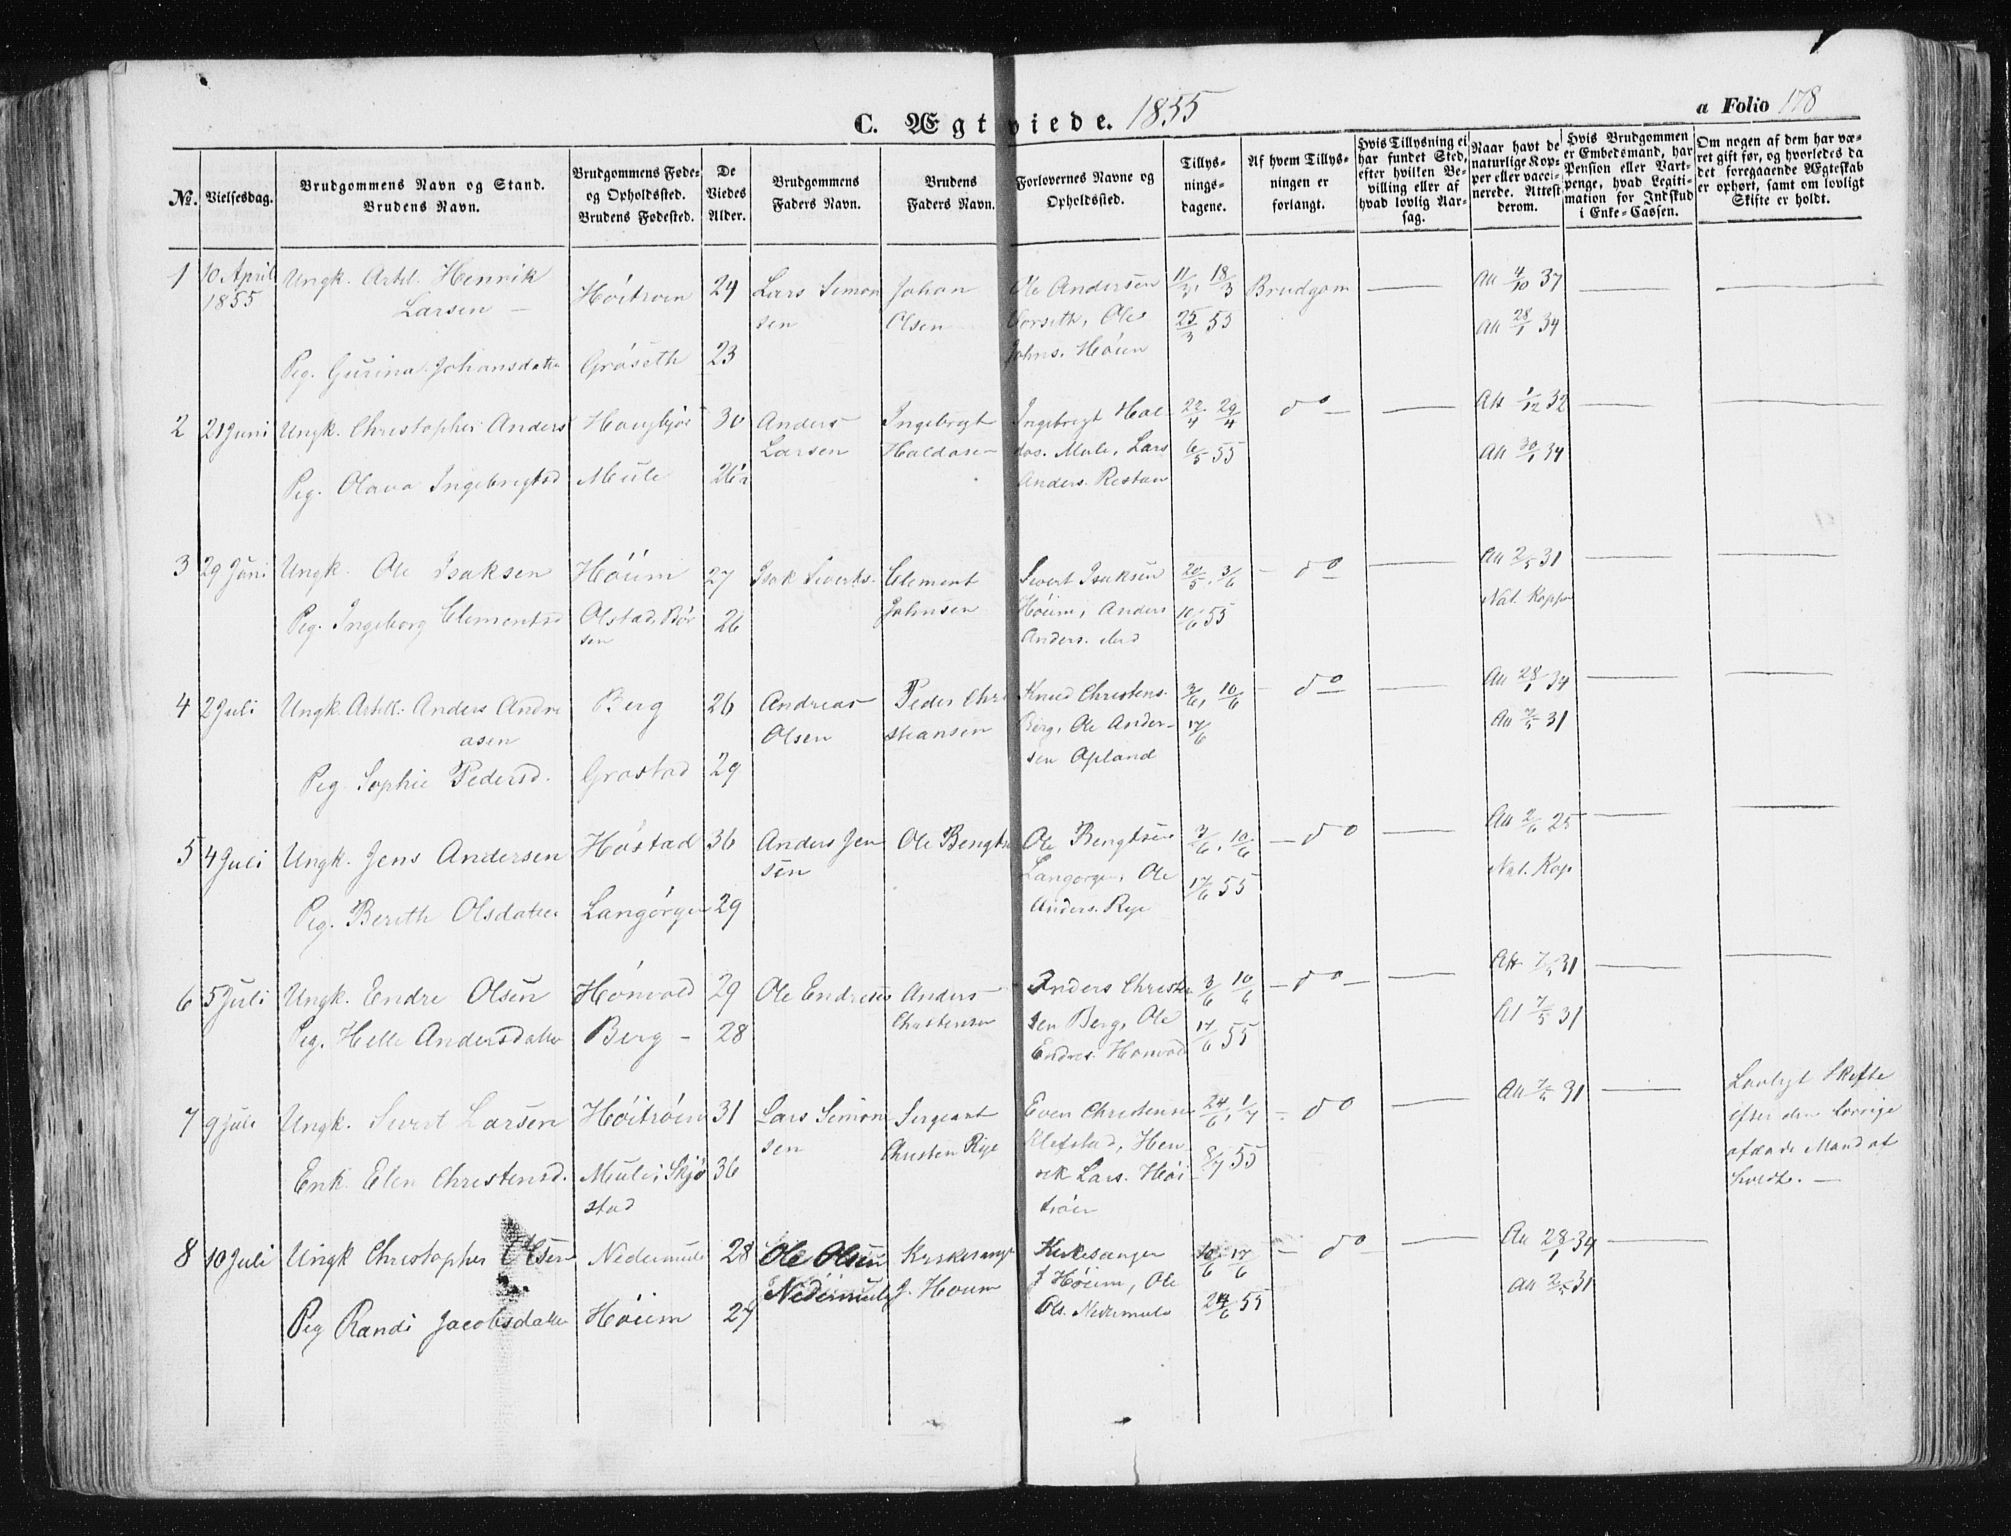 C. Ægtviede. 1855
a Folio 178
No.
Vielsesdag.
Brudgommens Navn og Stand.
Brudens Navn.
Brudgommens Føde-
og Opholdssted.
Brudens Fødested.
De
Viedes
Alder.
Brudgommens
Faders Navn.
Brudens
Faders Navn.
Forlovernes Navne og
Opholdssted.
Tillys-
nings-
dagene.
Af hvem Tillys-
ningen er
forlangt.
Hvis Tillysning ei
har fundet Sted,
efter hvilken Be-
villing eller af
hvad lovlig Aar-
sag.
Naar havt de
naturlige Kop-
per eller vacci-
nerede. Attest
derom.
Hvis Brudgommen
er Embedsmand, har
Pension eller Vart-
penge, hvad Legiti-
mation for Indskud
i Enke-Cassen.
Om nogen af dem har væ-
ret gift før, og hvorledes da
det foregaaende Ægteskab
er ophørt, samt om lovligt
Skifte er holdt.
1 10 April 1855
Ungk. Artl. Henrik
Larsen
Høitroen 24
Lars Simon
sen
Johan
Olsen
Ole Andersen
Ole
Johns. Høuen
11/3, 18/3
25/3 55
Brudgom
Att 4/10 37
Att 28/1 34
Pig. Gurina Johansdatter
Grøseth 23
2 21 Juni
Ungk. Christopher Anders
30
Anders
Larsen
Ingebrigt
Haldosen
Ingebrigt Hal
dos. Mule, Lars
Anders. Restan
22/4 29/4
6/5 55
do
Att 1/12 32
Att 30/1 34
Pig. Olava Ingebrigtsd
Mule 26½
3 29 Juni
Ungk. Ole Isaksen
Høium 27
Isak Siverts.
Clement
Johnsen
Sivert Isaksen
Høium, Anders
Anders.
20/5, 3/6
10/6 55
do
Att 2/5 31
Nat. Kopper
Pig. Ingeborg Clementsd
Olstad, Bør
sen 26
4 2 Juli
Ungk. Artill. Anders Andre
asen
Berg 26
Andreas
Olsen
Peder Chri
stiansen
Knud Christens.
Berg, Ole Ander-
sen Opland
3/6, 10/6
17/6
do
Att 28/1 34
Att 7/5 31
Pig. Sophie Pedersd.
Grostad 29
5 4 Juli
Ungk. Jens Andersen
Høstad 36
Anders Jen
sen
Ole Bengts
Ole Bengtsen
Langørgen, Ole
Anders. Rye
3/6, 10/6
17/6 55
do
Att 2/6 25
Nat. Kop
Pig. Berith Olsdatter
Langørgen 29
6 5 Juli
Ungk. Endre Olsen
Hønvold 29
Ole Endresen
Anders
Christensen
Anders Christen
sen Berg, Ole
Endres. Hønvold
3/6 10/6
17/6 55
do
Att 7/5 31
At 7/5 31
Pig. Helle Andersdatter
Berg 28
7 9 Juli
Ungk. Sivert Larsen
Høitrøen 31
Lars Simon
sen
Sergeant
Christen Rye
Even Christensen
Klefstad, Hen
rik Lars. Høi
trøen
24/6, 1/7
8/7 55
do
Att 7/5 31
Lovligt Skifte
efter den forrige
afdøde Mand af
holdt.
Enk. Elen Christensd.
Mule, Skjø
stad 36
8 10 Juli
Ungk Christopher Olsen
Nedermule 28
Ole Olsen
Nedermule
Kirkesanger
J. Høium
Kirkesanger
J Høium, Ole
Ols. Nedermule
10/6 17/6
24/6 55
do
Att 28/1 34
Att 2/5 31
Pig Randi Jacobsdatter
Høium 27